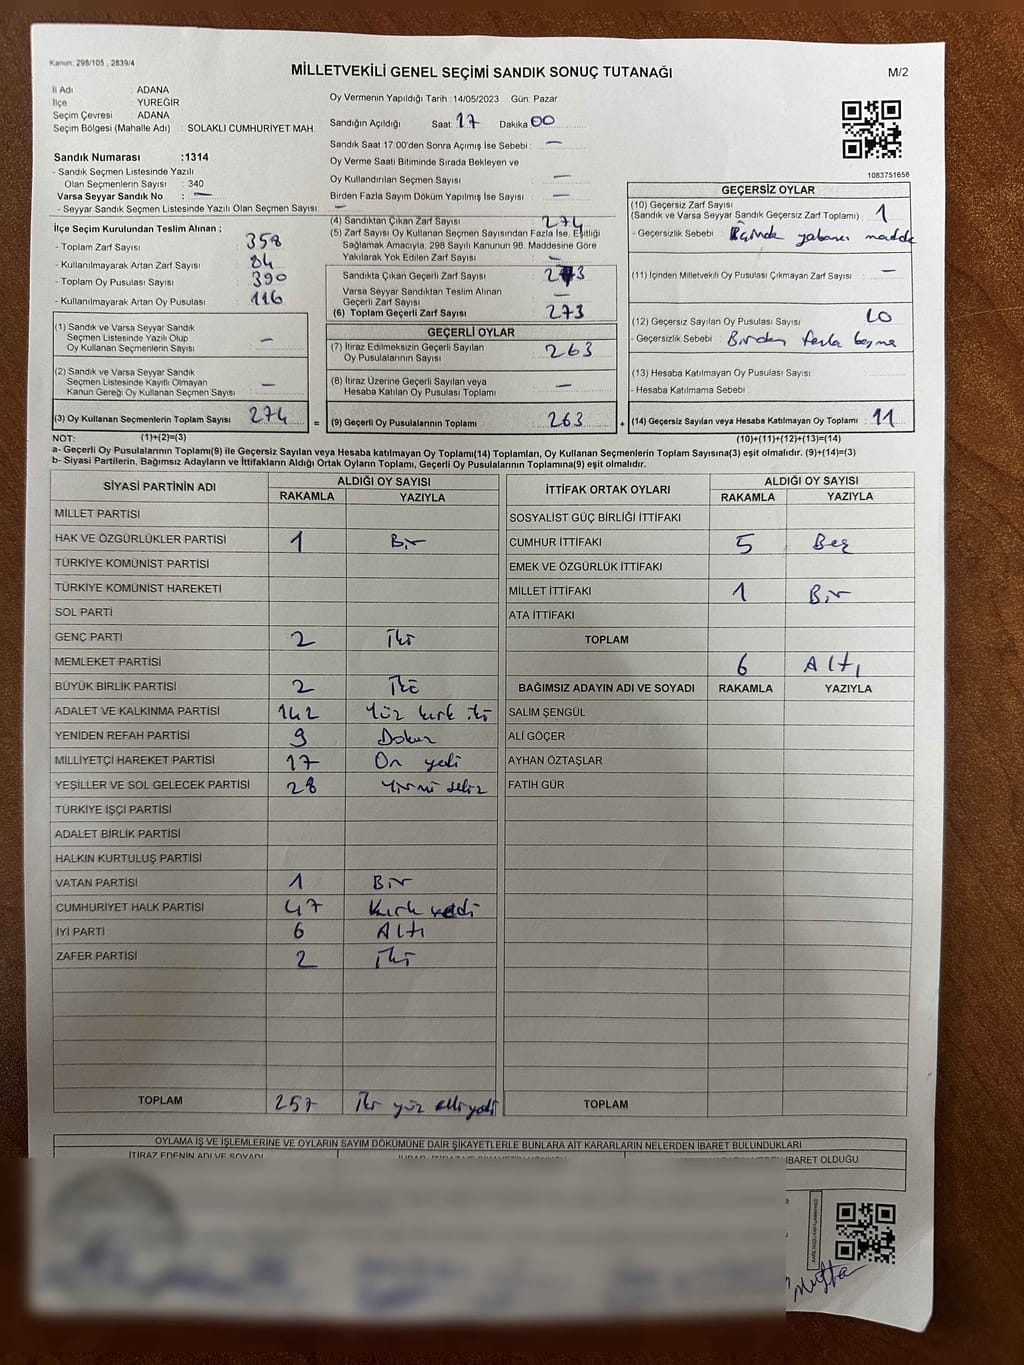 Kanun: 298/105 , 2839/4
MİLLETVEKİLİ GENEL SEÇİMİ SANDIK SONUÇ TUTANAĞI
M/2
İl Adı : ADANA
İlçe : YÜREĞİR
Seçim Çevresi : ADANA
Seçim Bölgesi (Mahalle Adı) : SOLAKLI CUMHURİYET MAH.
Oy Vermenin Yapıldığı Tarih : 14/05/2023 Gün: Pazar
Sandığın Açıldığı Saat: 17 Dakika 00
Sandık Saat 17:00'den Sonra Açımış İse Sebebi : —
Oy Verme Saati Bitiminde Sırada Bekleyen ve
Oy Kullandırılan Seçmen Sayısı : —
Birden Fazla Sayım Döküm Yapılmış İse Sayısı : —
Sandık Numarası :1314
- Sandık Seçmen Listesinde Yazılı
Olan Seçmenlerin Sayısı : 340
Varsa Seyyar Sandık No : —
- Seyyar Sandık Seçmen Listesinde Yazılı Olan Seçmen Sayısı: —
İlçe Seçim Kurulundan Teslim Alınan ;
- Toplam Zarf Sayısı : 358
- Kullanılmayarak Artan Zarf Sayısı : 84
- Toplam Oy Pusulası Sayısı : 390
- Kullanılmayarak Artan Oy Pusulası : 116
(1) Sandık ve Varsa Seyyar Sandık
Seçmen Listesinde Yazılı Olup
Oy Kullanan Seçmenlerin Sayısı : —
(2) Sandık ve Varsa Seyyar Sandık
Seçmen Listesinde Kayıtlı Olmayan
Kanun Gereği Oy Kullanan Seçmen Sayısı : —
(3) Oy Kullanan Seçmenlerin Toplam Sayısı : 274
(4) Sandıktan Çıkan Zarf Sayısı : 274
(5) Zarf Sayısı Oy Kullanan Seçmen Sayısından Fazla İse, Eşitliği
Sağlamak Amacıyla, 298 Sayılı Kanunun 98. Maddesine Göre
Yakılarak Yok Edilen Zarf Sayısı : —
Sandıkta Çıkan Geçerli Zarf Sayısı : 273
Varsa Seyyar Sandıktan Teslim Alınan
Geçerli Zarf Sayısı : —
(6) Toplam Geçerli Zarf Sayısı : 273
GEÇERLİ OYLAR
(7) İtiraz Edilmeksizin Geçerli Sayılan
Oy Pusulalarının Sayısı : 263
(8) İtiraz Üzerine Geçerli Sayılan veya
Hesaba Katılan Oy Pusulası Toplamı : —
= (9) Geçerli Oy Pusulalarının Toplamı : 263
1083751658
GEÇERSİZ OYLAR
(10) Geçersiz Zarf Sayısı
(Sandık ve Varsa Seyyar Sandık Geçersiz Zarf Toplamı) : 1
- Geçersizlik Sebebi : İçinde yabancı madde
(11) İçinden Milletvekili Oy Pusulası Çıkmayan Zarf Sayısı : —
(12) Geçersiz Sayılan Oy Pusulası Sayısı : 10
- Geçersizlik Sebebi : Birden fazla basma
(13) Hesaba Katılmayan Oy Pusulası Sayısı :
- Hesaba Katılmama Sebebi :
+ (14) Geçersiz Sayılan veya Hesaba Katılmayan Oy Toplamı : 11
NOT: (1)+(2)=(3) (10)+(11)+(12)+(13)=(14)
a- Geçerli Oy Pusulalarının Toplamı(9) ile Geçersiz Sayılan veya Hesaba katılmayan Oy Toplamı(14) Toplamları, Oy Kullanan Seçmenlerin Toplam Sayısına(3) eşit olmalıdır. (9)+(14)=(3)
b- Siyasi Partilerin, Bağımsız Adayların ve İttifakların Aldığı Ortak Oyların Toplamı, Geçerli Oy Pusulalarının Toplamına(9) eşit olmalıdır.
SİYASİ PARTİNİN ADI ALDIĞI OY SAYISI
RAKAMLA YAZIYLA
MİLLET PARTİSİ
HAK VE ÖZGÜRLÜKLER PARTİSİ 1 Bir
TÜRKİYE KOMÜNİST PARTİSİ
TÜRKİYE KOMÜNİST HAREKETİ
SOL PARTİ
GENÇ PARTİ 2 İki
MEMLEKET PARTİSİ
BÜYÜK BİRLİK PARTİSİ 2 İki
ADALET VE KALKINMA PARTİSİ 142 Yüz kırk iki
YENİDEN REFAH PARTİSİ 9 Dokuz
MİLLİYETÇİ HAREKET PARTİSİ 17 On yedi
YEŞİLLER VE SOL GELECEK PARTİSİ 28 Yirmi sekiz
TÜRKİYE İŞÇİ PARTİSİ
ADALET BİRLİK PARTİSİ
HALKIN KURTULUŞ PARTİSİ
VATAN PARTİSİ 1 Bir
CUMHURİYET HALK PARTİSİ 47 Kırk yedi
İYİ PARTİ 6 Altı
ZAFER PARTİSİ 2 İki
TOPLAM 257 İki yüz elli yedi
İTTİFAK ORTAK OYLARI ALDIĞI OY SAYISI
RAKAMLA YAZIYLA
SOSYALİST GÜÇ BİRLİĞİ İTTİFAKI
CUMHUR İTTİFAKI 5 Beş
EMEK VE ÖZGÜRLÜK İTTİFAKI
MİLLET İTTİFAKI 1 Bir
ATA İTTİFAKI
TOPLAM
6 Altı
BAĞIMSIZ ADAYIN ADI VE SOYADI RAKAMLA YAZIYLA
SALİM ŞENGÜL
ALİ GÖÇER
AYHAN ÖZTAŞLAR
FATİH GÜR
TOPLAM
OYLAMA İŞ VE İŞLEMLERİNE VE OYLARIN SAYIM DÖKÜMÜNE DAİR ŞİKAYETLERLE BUNLARA AİT KARARLARIN NELERDEN İBARET BULUNDUKLARI
İTİRAZ EDENİN ADI VE SOYADI
İBARET OLDUĞU